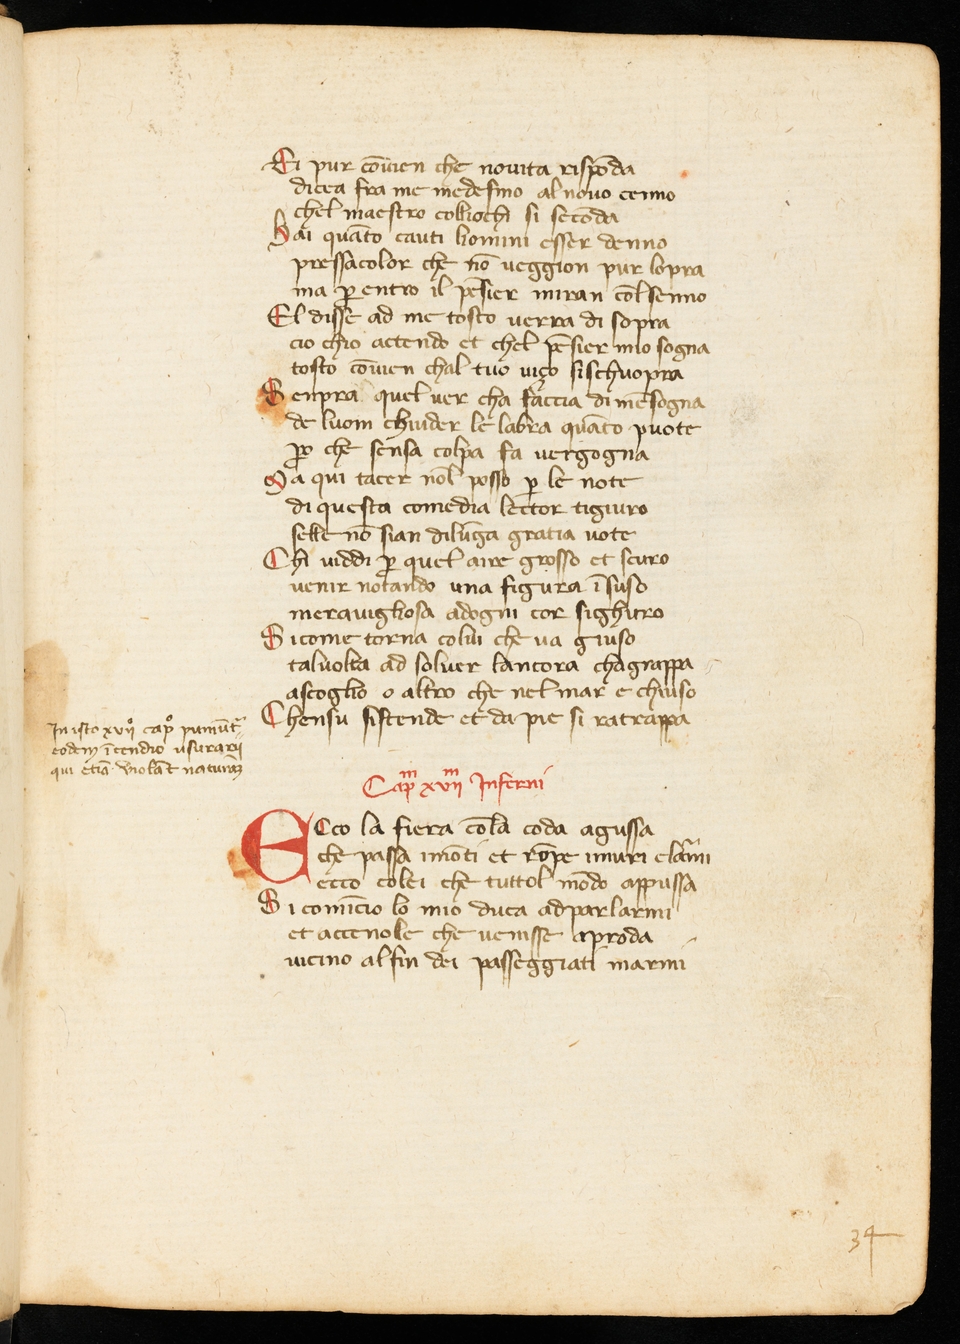 Ei pur cōvien che novita rispōda
dicea fra me medesmo al novo cenno
chel maestro collochi si secōda
Hai quāto cauti homini esser denno
pressacolor che nō veggion pur lopra
ma ꝑ entro il pēsier miran col senno
El disse ad me tosto verra di sopra
cio chio actendo et chel pēsier mio sogna
tosto cōvien chal tuo viço si schuopra
Senpra quel ver cha faccia di mēsogna
de luom chiuder le labra quāto puote
ꝑo che sensa colpa fa vergogna
Ma qui tacer nol posso ꝑ le note
di questa comedia lector tigiuro
selle nō sian di lūga gratia vote
Chi viddi ꝑ quel aire grosso et scuro
venir notando una figura ī suso
meravigliosa adogni cor sighuro
Si come torna colui che va giuso
talvolta ad solver lancora chagrappa
ascoglio o altro che nel mar e chiuso
Chensu sistende et da pie si ratrappa
In isto xvijº capº puniūt͛
eodem īcendio usurarij
qui etiā violāt naturaꝫ
Capᵐ xvijᵐ Inferni
ECco la fiera cōla coda agussa
che passa imōti et rōpe imuri elarmi
ecco colei che tuttol mōdo appussa
Si comīcio lo mio duca ad parlarmi
et accenolle che venisse aproda
vicino al fin dei passeggiati marmi
34